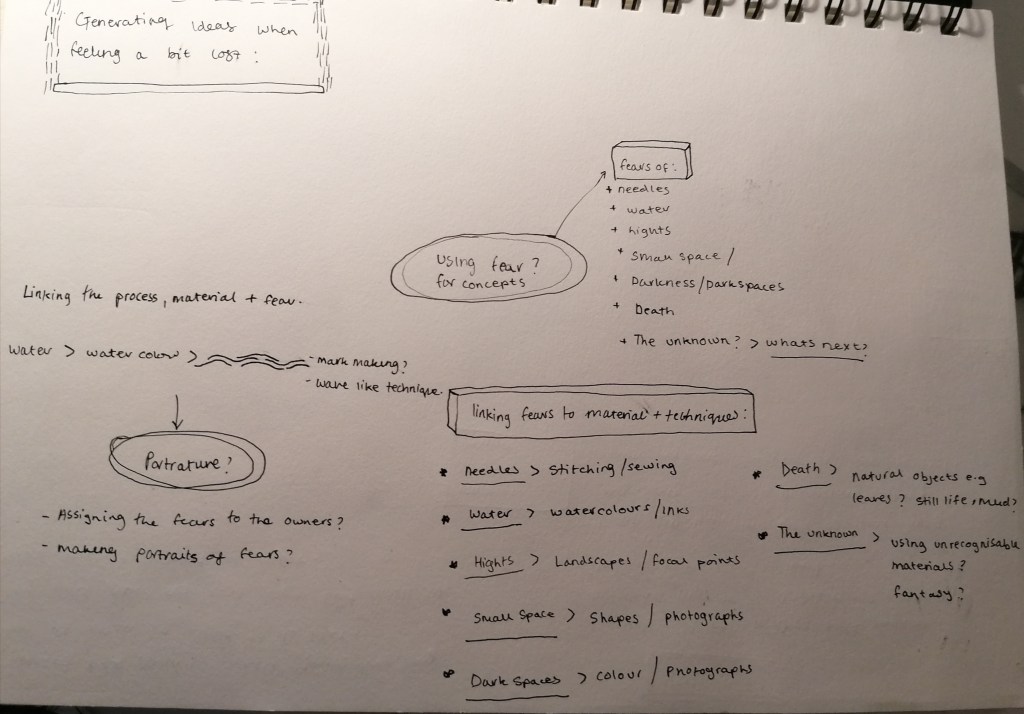 Generating Ideas when
feeling a bit lost :
fears of :
+ needles
+ water
+ hights
+ Small space /
+ Darkness/Darkspaces
+ Death
+ The unknown? > whats next?
using fear ?
for concepts
Linking the process, material + fear.
Water > water color >
- mark making?
- wave like technique.
Portrature?
- Assigning the fears to the owners?
- making portraits of fears?
linking fears to material + techniques :
* Needles > Stitching/sewing
* Water > watercolours/inks
* Hights > Landscapes / focal points
* Small Space > Shapes / photographs
* Dark Spaces > colour / Photographs
* Death > natural objects e.g
leaves? still life, mud?
* The unknown > using unrecognisable
materials?
fantasy?